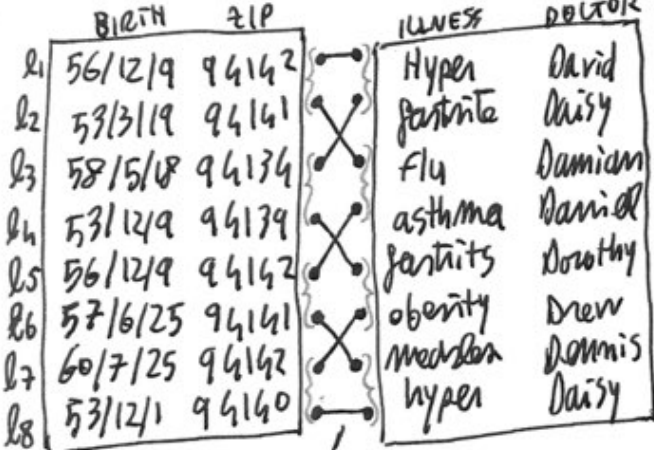 BIRTH ZIP ILLNESS DOCTOR
l1 56/12/9 94142 Hyper David
l2 53/3/19 94141 gastrite Daisy
l3 58/5/18 94134 Flu Damian
l4 53/12/9 94139 asthma Daniel
l5 56/12/9 94142 gastrits Dorothy
l6 57/6/25 94141 obesity Drew
l7 60/7/25 94142 Dennis
l8 53/12/1 94140 hyper Daisy